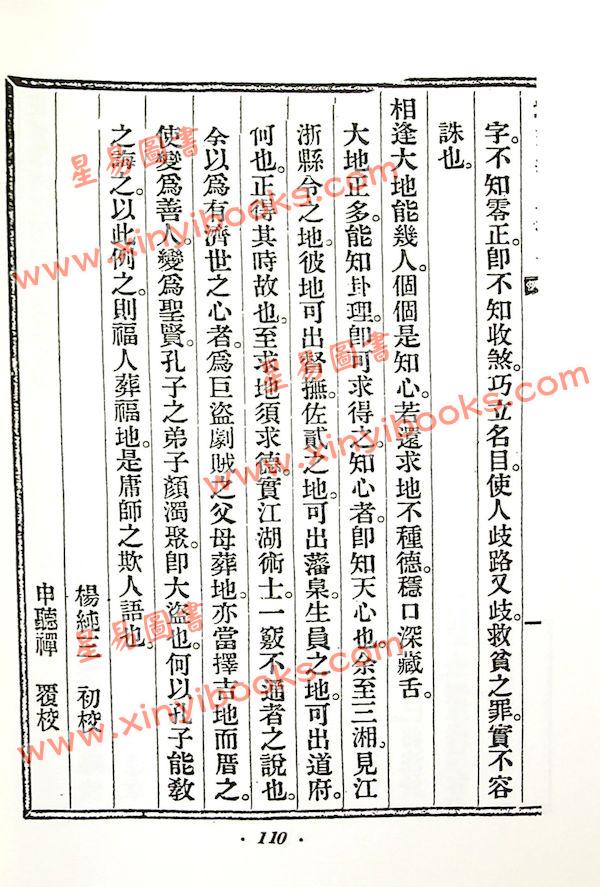 字。不知零正。卽不知收煞。巧立名目。使人歧路又歧。救貧之罪。實不容
誅也。
相逢大地能幾人。個個是知心。若還求地不種德。穩口深藏舌。
大地正多。能知卦理。卽可求得之。知心者。卽知天心也。余至三湘。見江
浙縣令之地。彼地可出督撫。佐貳之地。可出藩臬。生員之地。可出道府。
何也。正得其時故也。至求地須求德。實江湖術士。一竅不通者之說也。
余以爲有濟世之心者。爲巨盜劇賊之父母葬地。亦當擇吉地而厝之。
使變爲善人。變爲聖賢。孔子之弟子顏濁聚。卽大盜也。何以孔子能敎
之誨之。以此例之。則福人葬福地。是庸師之欺人語也。
楊純三 初校
申聽禪 覆校
·110·
星易圖書
www.xinyibooks.com
星易圖書
www.xinyibooks.com
星易圖書
www.xinyibooks.com